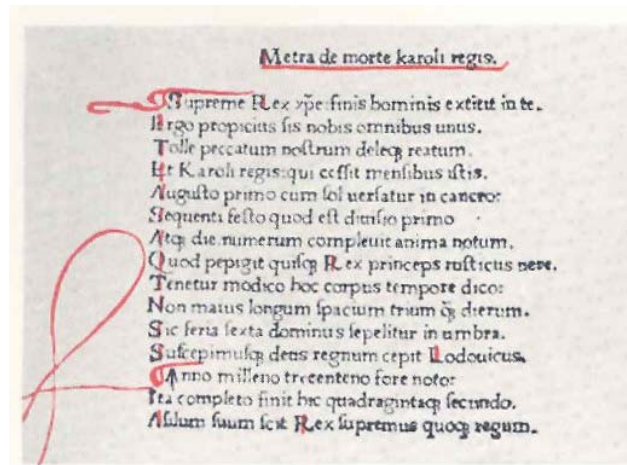 Metra de morte karoli regis.
Supreme Rex xp̄e: finis hominis extitit in te.
Ergo propicius sis nobis omnibus unus.
Tolle peccatum nostrum deleqꝫ reatum.
Et Karoli regis: qui cessit mensibus istis.
Augusto primo cum sol uersatur in cancro:
Sequenti festo quod est diuisio primo
Atqꝫ die numerum compleuit anima notum.
Quod pepigit quisqꝫ Rex princeps rusticus nere.
Tenetur modico hoc corpus tempore dico:
Non maius longum spacium trium q̄ꝫ dierum.
Sic feria sexta dominus sepelitur in umbra.
Suscepimusqꝫ deus regnum cepit Lodouicus.
Anno milleno trecenteno fore noto:
Ita completo finit hic quadragintaqꝫ secundo.
Asilum suum scit Rex supremus quoqꝫ regum.